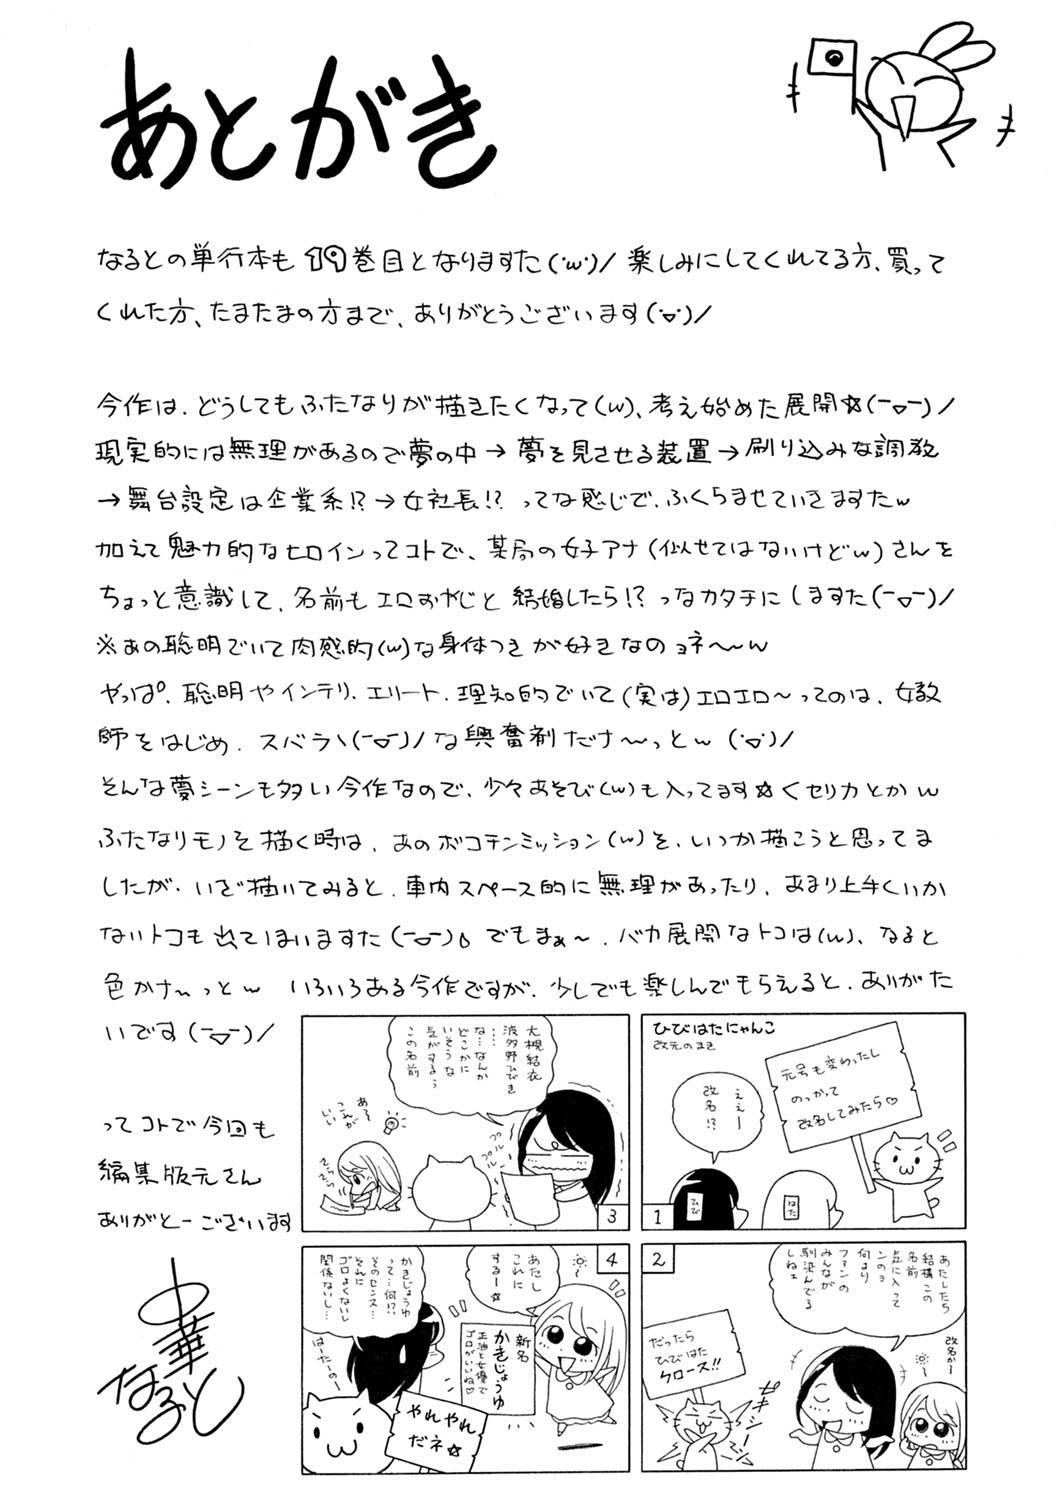 あとがき
なるとの単行本も19巻目となりますた(･w･)/ 楽しみにしてくれてる方、買って
くれた方、たまたまの方まで、ありがとうございます(･▽･)/
今作は、どうしてもふたなりが描きたくなって(w)、考え始めた展開☆(ー▽ー)/
現実的には無理があるので夢の中→夢を見させる装置→刷り込みな調教
→舞台設定は企業系!?→女社長!? ってな感じで、ふくらませていきますたw
加えて魅力的なヒロインってコトで、某局の女子アナ(似せてはないけどw)さんを
ちょっと意識して、名前もエロおやじと結婚したら!? っなカタチにしますた(ー▽ー)/
※あの聡明でいて肉感的(w)な身体つきが好きなのョネ〜〜w
やっぱ、聡明やインテリ、エリート、理知的でいて(実は)エロエロ〜ってのは、女教
師をはじめ、スバラヽ(ー▽ー)/な興奮剤だナ〜っとw (･▽･)/
そんな夢シーンも多い今作なので、少々あそび(w)も入ってます☆くセリカとかw
ふたなりモノを描く時は、あのボコチンミッション(w)を、いつか描こうと思ってま
したが、いざ描いてみると、車内スペース的に無理があったり、あまり上手くいか
ないトコも出てしまいますた(ー▽ー)。でもまぁ〜、バカ展開なトコは(w)、なると
色かナ〜っとw いろいろある今作ですが、少しでも楽しんでもらえると、ありがた
いです(ー▽ー)/
ってコトで今回も
編集版元さん
ありがとーございます
中華
なると
ひびはたにゃんこ
改元のまき
元号も変わったし
のっかって
改名してみたら♡
ええー
改名!?
ひび
はた
1
あたしたち
結構この
名前
気に入って
ンのョ
何より
ファンの
みんなが
馴染んでる
しねェ
改名かー
だったら
ひびはた
クローズ!!
2
大槻結衣
波多野ひびき
……
な…なんか
どこかに
いそうな
気がするぅ
この名前
プルプル
プルプル
あ
こんなが
いい
3
あたし
これに
するー☆
新名
かきじょうゆ
正油と女優で
ゴロがいいね♡
かきじょうゆ
って…何!?
そのセンス…
それに
ゴロよくないし
関係ないし…
はーたーのー
やれやれ
だネ☆
4